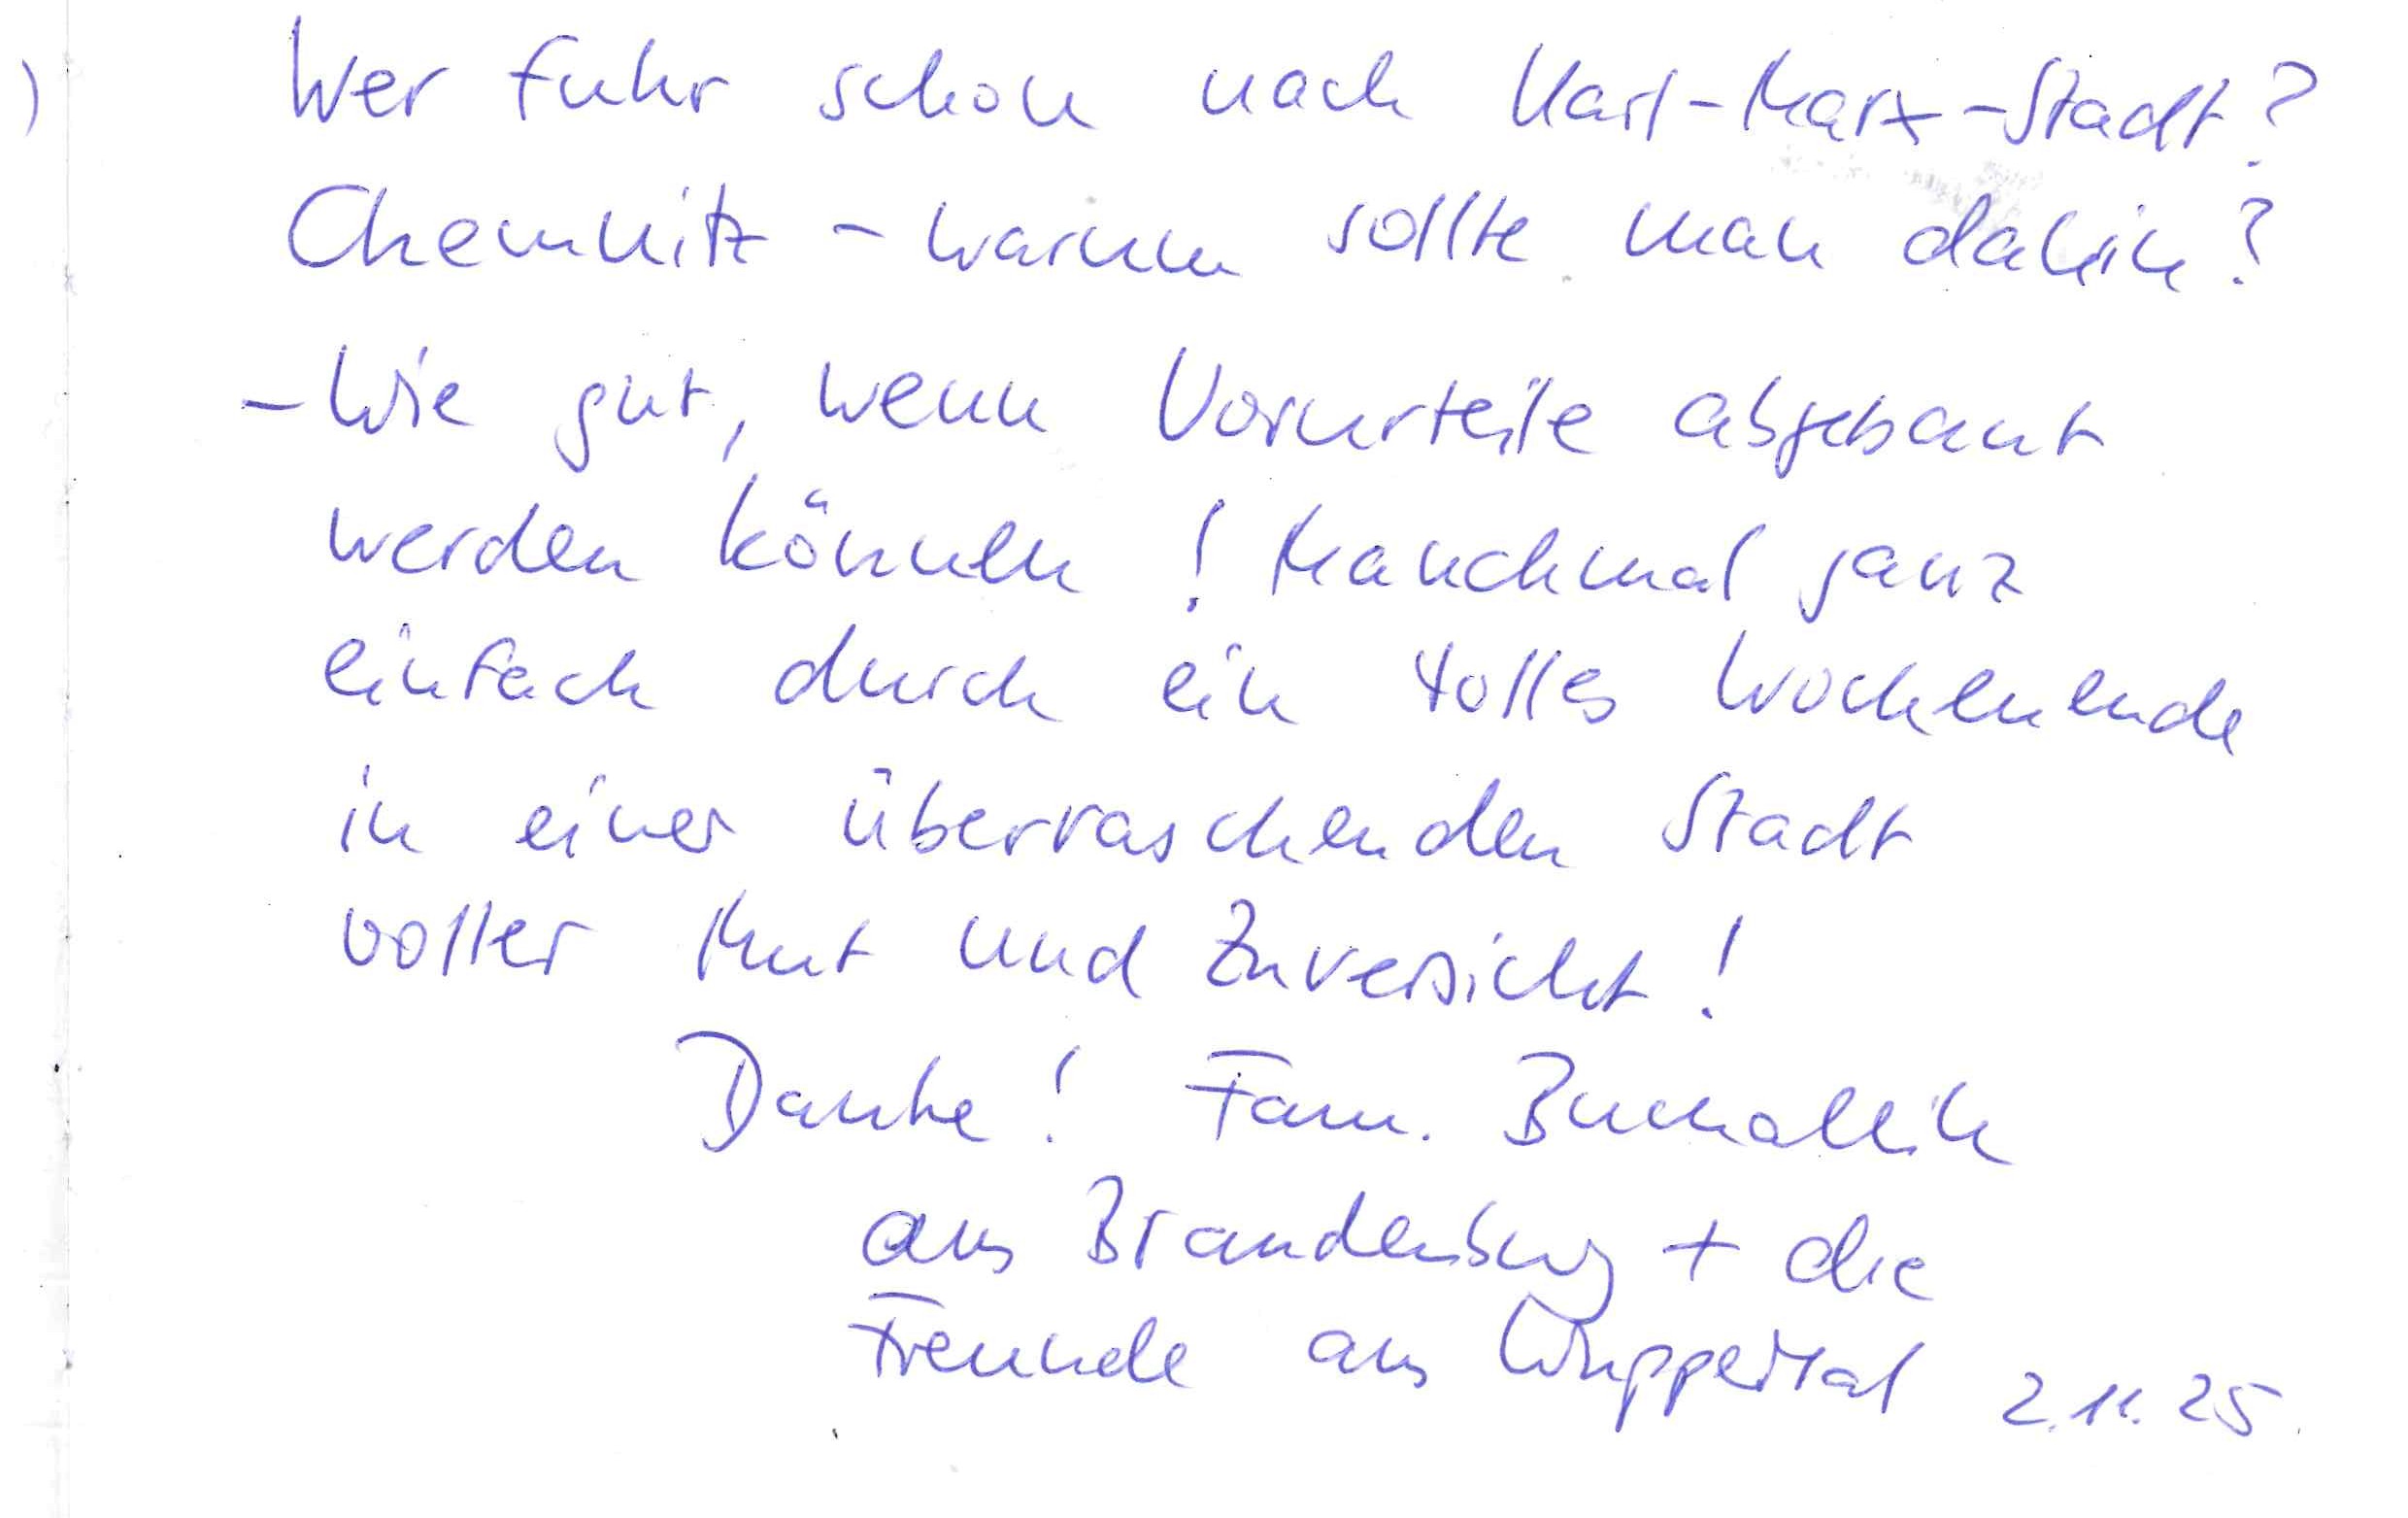 Wer fuhr schon nach Karl-Marx-Stadt?
Chemnitz - warum sollte man dahin?
- Wie gut, wenn Vorurteile abgebaut
werden können! Manchmal ganz
einfach durch ein tolles Wochenende
in einer überraschenden Stadt
voller Mut und Zuversicht!
Danke! Fam.
aus Brandenburg + die
Freunde aus Wuppertal 2.11.25